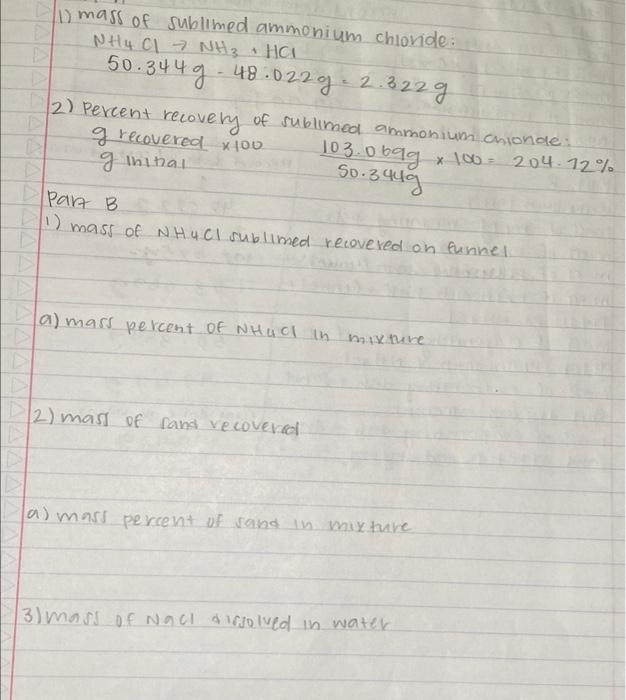 1) mass of sublimed ammonium chloride:
NH4 Cl → NH3 + HCl
50.344g - 48.022g = 2.322g
2) Percent recovery of sublimed ammonium chloride:
g recovered x100 103.069g x 100 = 204.72%
g initial 50.344g
Part B
1) mass of NH4Cl sublimed recovered on funnel
a) mass percent of NH4Cl in mixture
2) mass of sand recovered
a) mass percent of sand in mixture
3) mass of NaCl dissolved in water